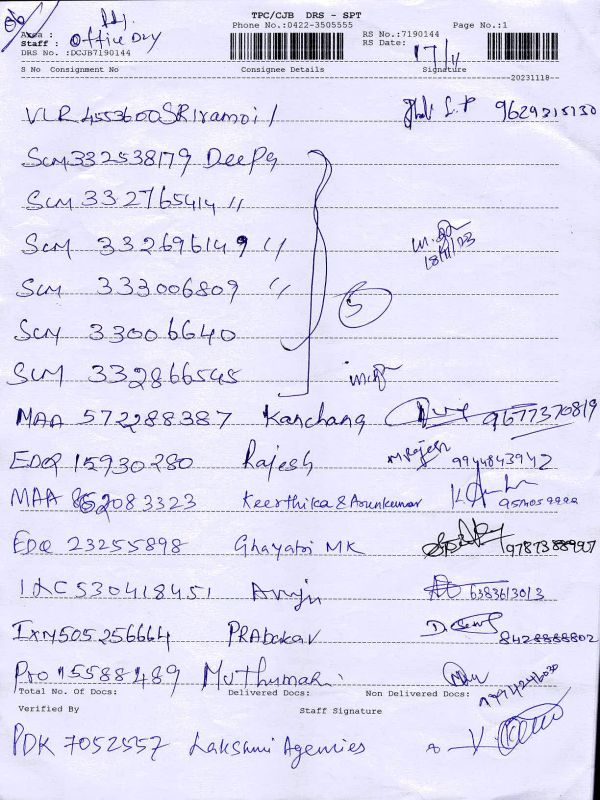 TPC/CJB DRS - SPT
Phone No.:0422-3505555 Page No.:1
Area :
Staff : Office Dly
RS No.:7190144
DRS No. :DCJB7190144 RS Date: 17/11
S No Consignment No Consignee Details Signature
20231118
VLR 4553600 SRiramoi / 9629215130
SCM 332538179 Deepa
SCM 332765414 "
SCM 332696149 "
18/11/23
SCM 333006809 "
5
SCM 33006640
SCM 332866545
MAA 572288387 Kanchana 9677370819
EDQ 15930280 Rajesh M Rajesh 9944843942
MAA 852083323 Keerthika & Arunkumar
EDQ 23255898 Ghayatri MK
530418451 Anju 6383613013
IXM505256664 PRabakar 8428888802
Pro 15588489 Muthumari
Total No. Of Docs: Delivered Docs: Non Delivered Docs:
Verified By Staff Signature
PDK 7052557 Lakshmi Agencies